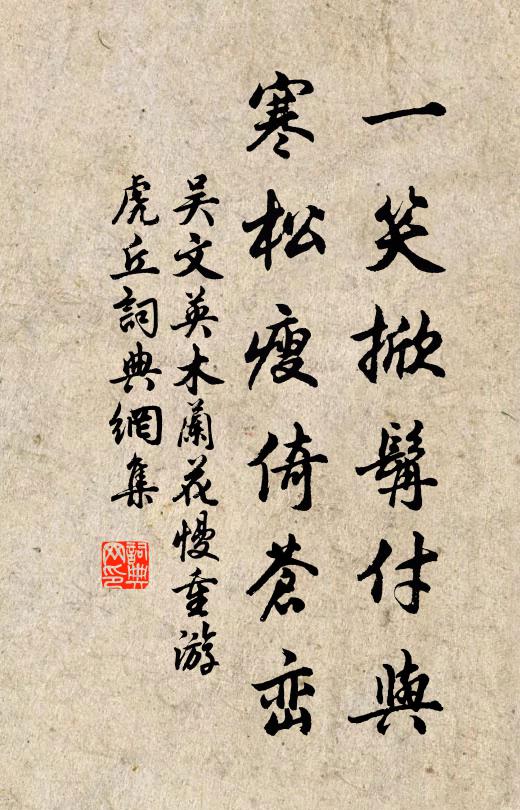 一笑掀髯付與
寒松瘦倚蒼峦
吴文英木蘭花慢重游
虎丘詞典網集
詞典
网印